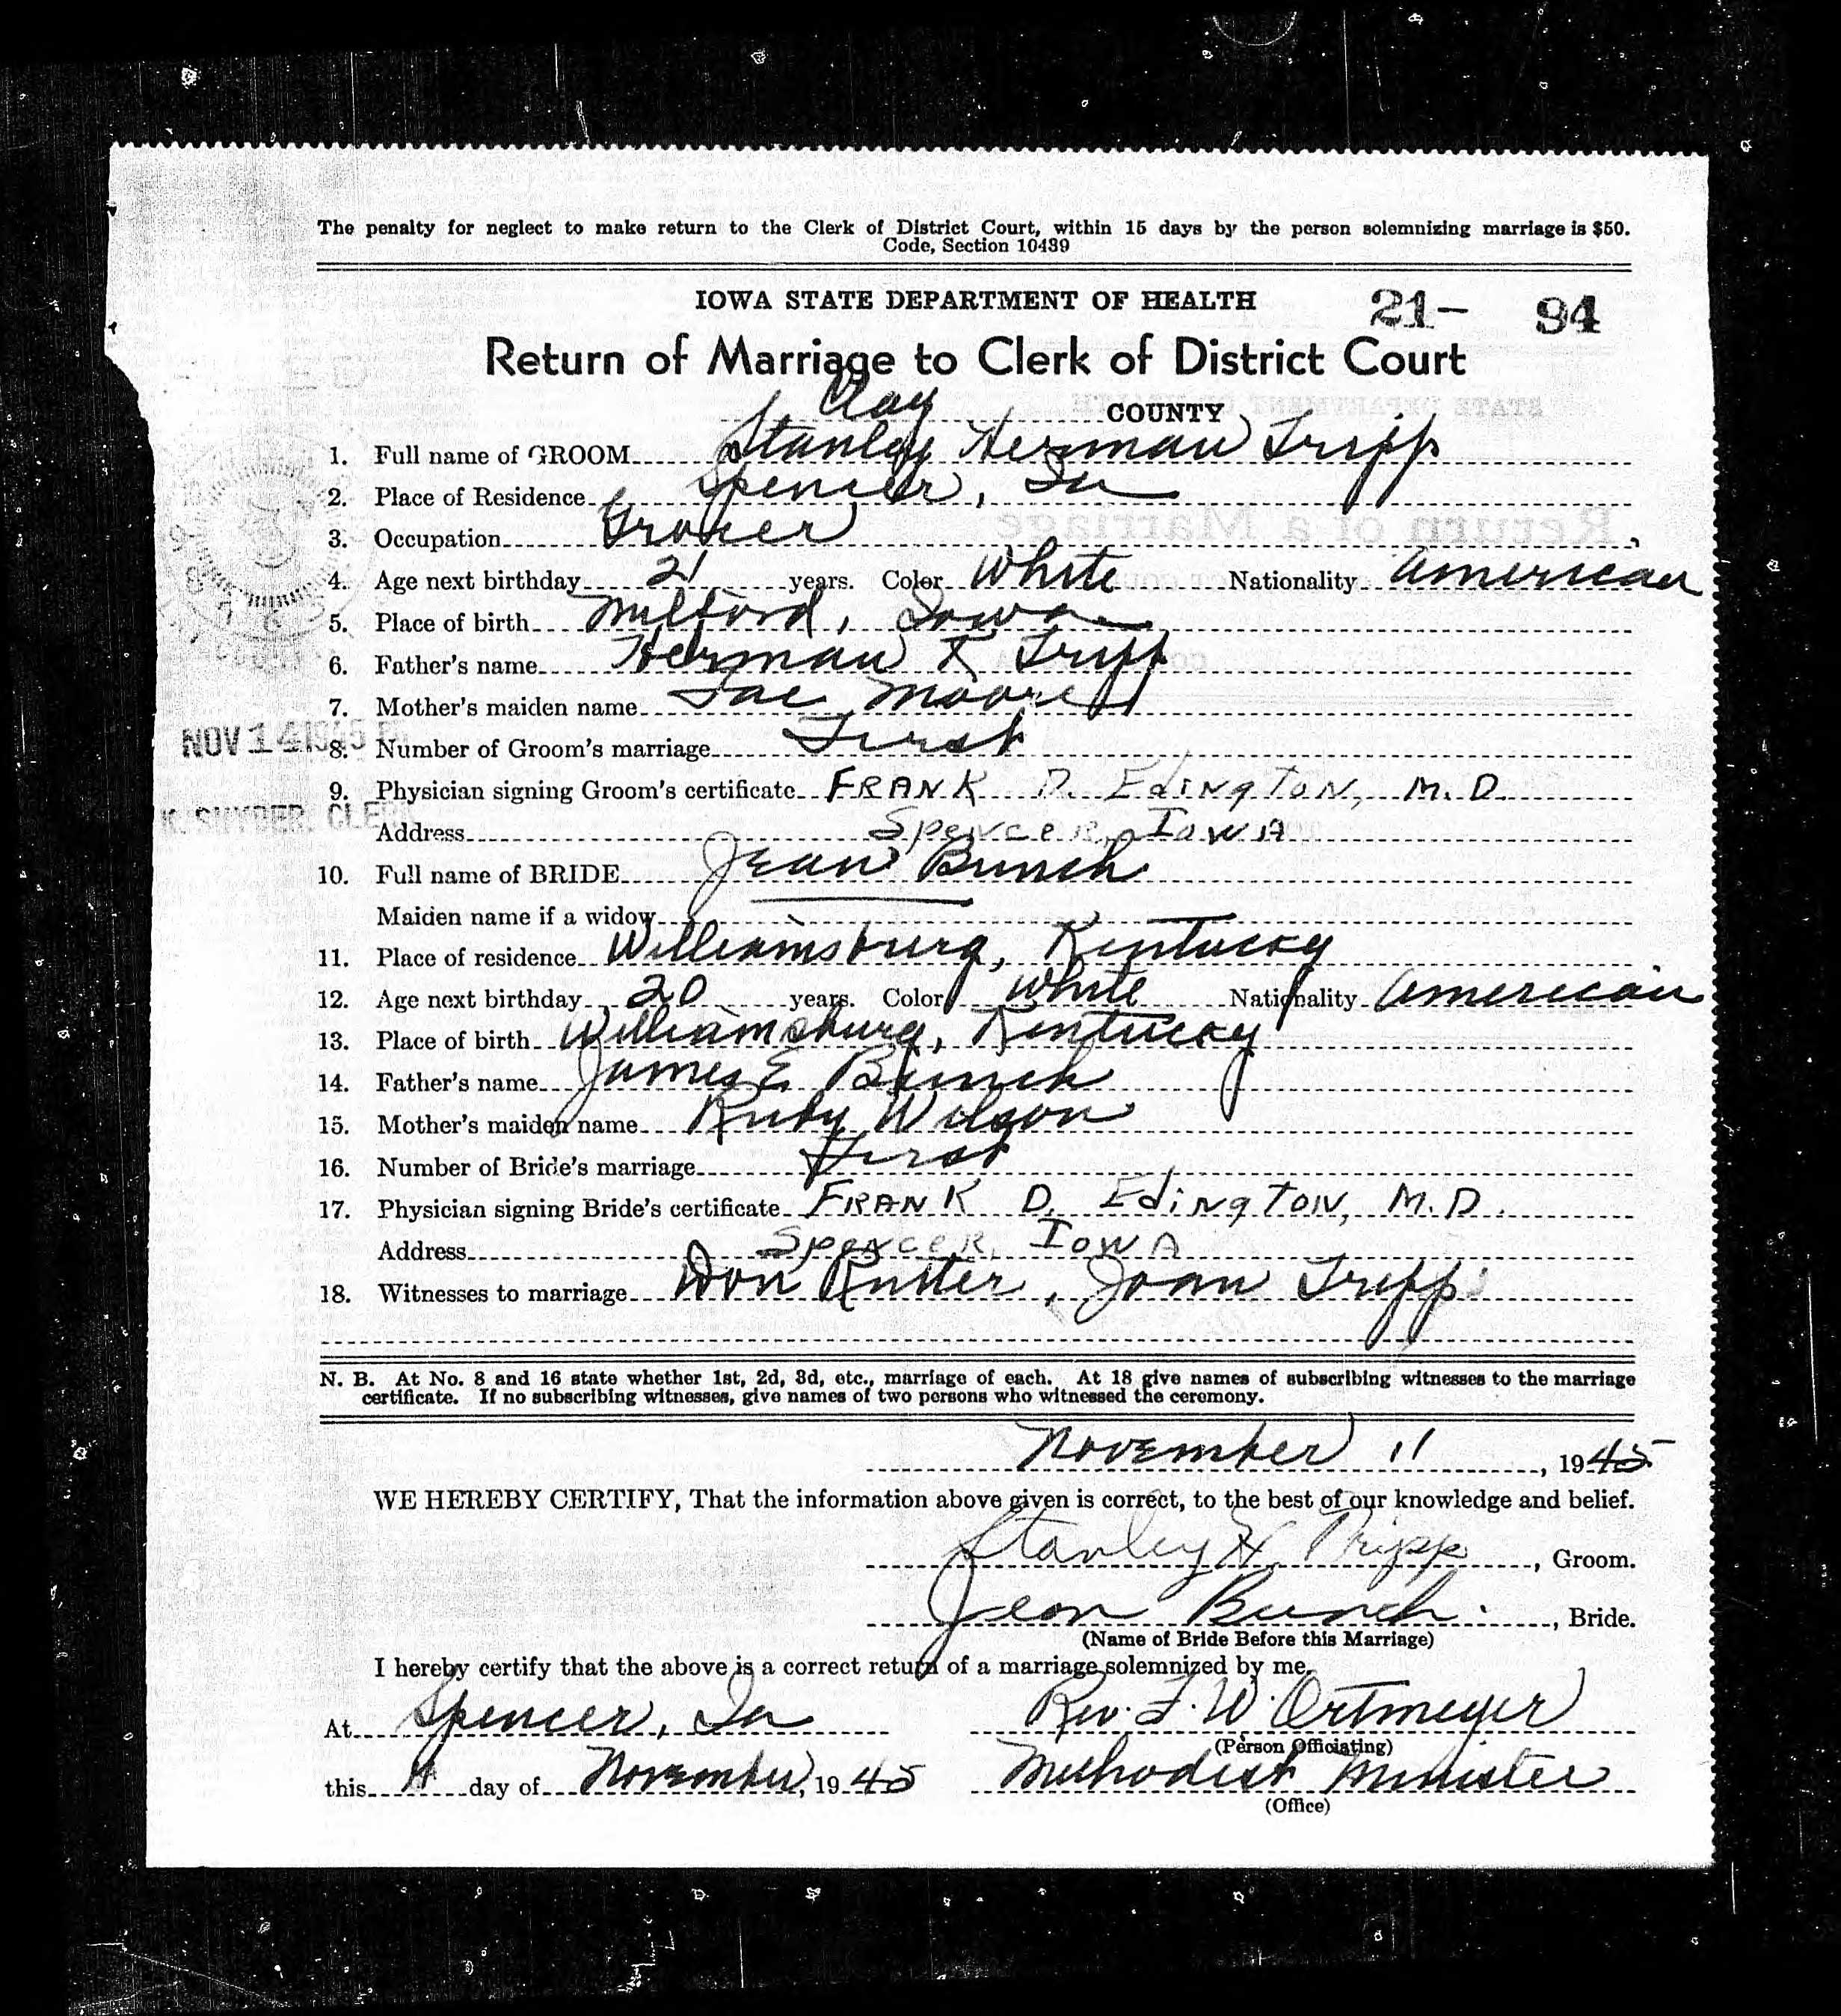 The penalty for neglect to make return to the Clerk of District Court, within 15 days by the person solemnizing marriage is $50.
Code, Section 10439
IOWA STATE DEPARTMENT OF HEALTH 21- 94
Return of Marriage to Clerk of District Court
Clay COUNTY
1. Full name of GROOM Stanley Herman Tripp
2. Place of Residence Spencer, Ia
3. Occupation Grocer
4. Age next birthday 21 years. Color White Nationality American
5. Place of birth Milford, Iowa
6. Father's name Herman Tripp
7. Mother's maiden name Moore
NOV 14 1945
8. Number of Groom's marriage First
9. Physician signing Groom's certificate FRANK D. Edington, M.D.
K. SNYDER, CLERK
Address Spencer, Iowa
10. Full name of BRIDE Jean Bunch
Maiden name if a widow
11. Place of residence Williamsburg, Kentucky
12. Age next birthday 20 years. Color White Nationality American
13. Place of birth Williamsburg, Kentucky
14. Father's name James E. Bunch
15. Mother's maiden name Ruby Wilson
16. Number of Bride's marriage First
17. Physician signing Bride's certificate FRANK D. Edington, M.D.
Address Spencer, Iowa
18. Witnesses to marriage Don , Joan Tripp
N. B. At No. 8 and 16 state whether 1st, 2d, 3d, etc., marriage of each. At 18 give names of subscribing witnesses to the marriage
certificate. If no subscribing witnesses, give names of two persons who witnessed the ceremony.
November 11, 1945
WE HEREBY CERTIFY, That the information above given is correct, to the best of our knowledge and belief.
Stanley H. Tripp, Groom.
Jean Bunch, Bride.
(Name of Bride Before this Marriage)
I hereby certify that the above is a correct return of a marriage solemnized by me.
At Spencer, Ia Rev. F. W. Ortmeyer
(Person Officiating)
this 11 day of November, 1945 Methodist Minister
(Office)